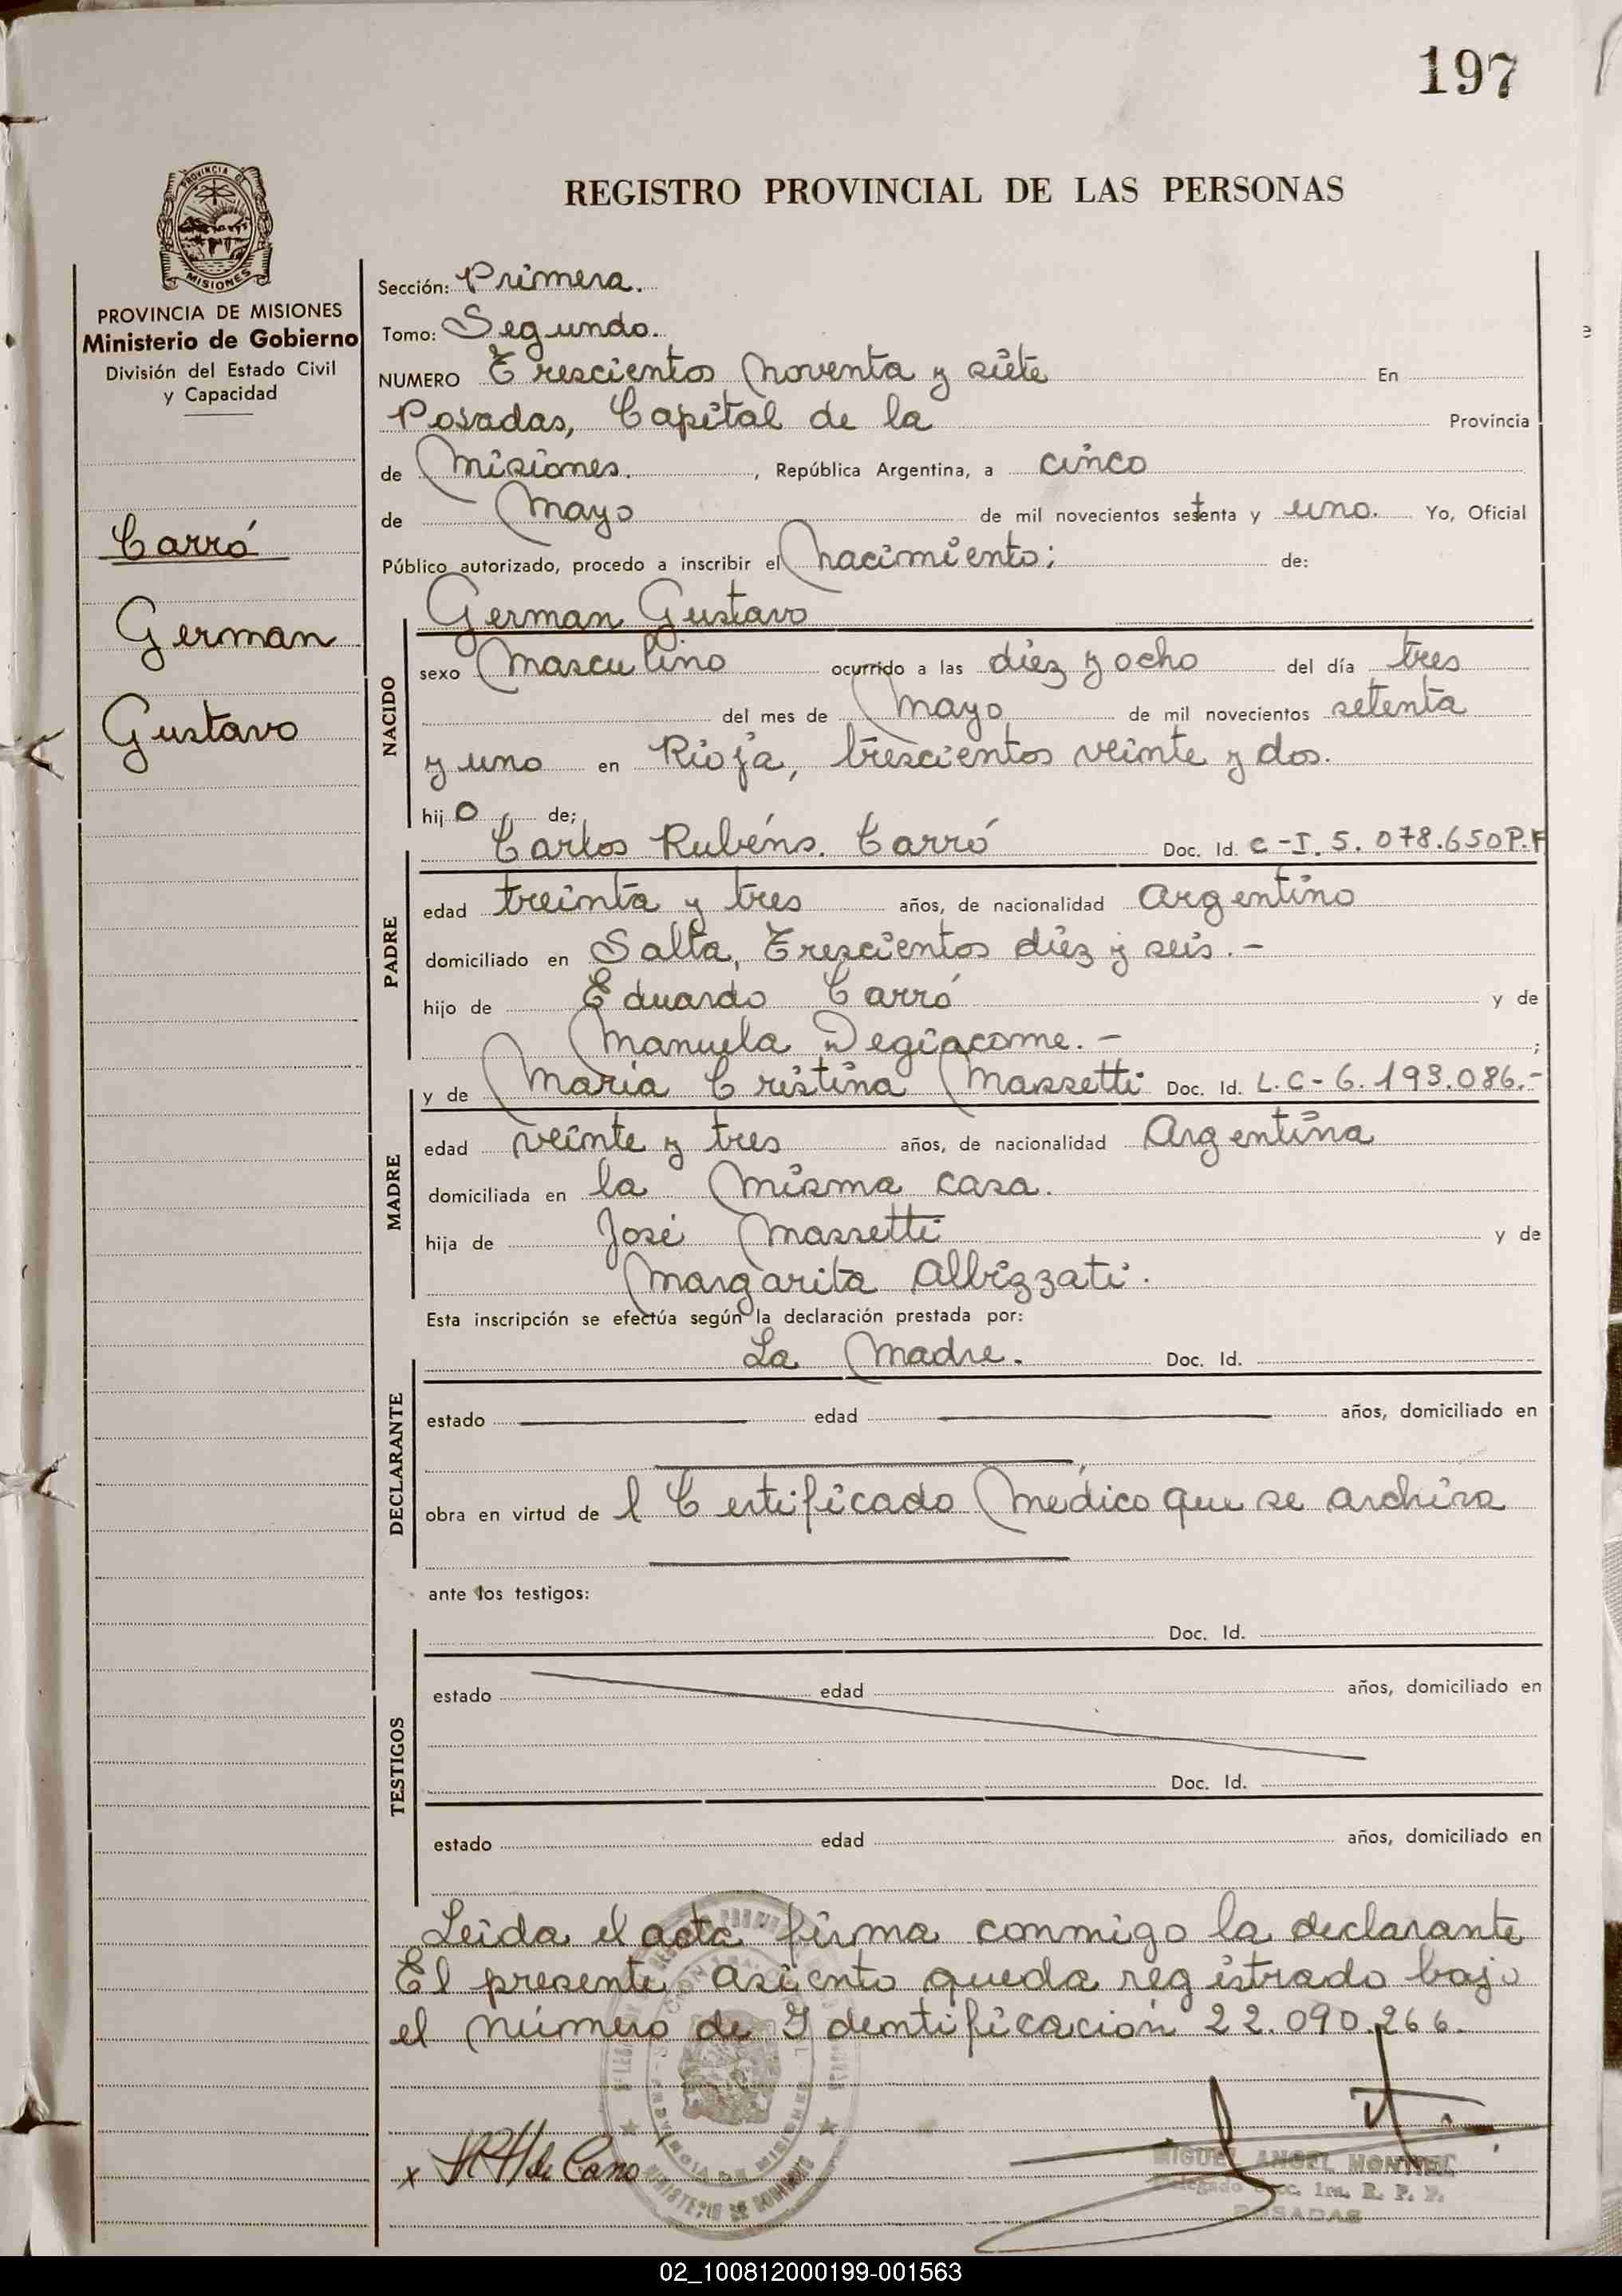 197
REGISTRO PROVINCIAL DE LAS PERSONAS
PROVINCIA DE MISIONES
PROVINCIA DE MISIONES
Ministerio de Gobierno
División del Estado Civil
y Capacidad
Carró
German
Gustavo
Sección: Primera.
Tomo: Segundo.
NUMERO Trescientos noventa y siete En
Posadas, Capital de la Provincia
de Misiones. , República Argentina, a cinco
de Mayo de mil novecientos setenta y uno. Yo, Oficial
Público autorizado, procedo a inscribir el nacimiento; de:
German Gustavo
NACIDO
sexo Masculino ocurrido a las diez y ocho del día tres
del mes de Mayo de mil novecientos setenta
y uno en Rioja, trescientos veinte y dos.
hijo de;
Carlos Rubéns. Carró Doc. Id. C-I. 5.078.650 P.F
PADRE
edad treinta y tres años, de nacionalidad Argentino
domiciliado en Salta, Trescientos diez y seis.-
hijo de Eduardo Carró y de
Manuela Degiacome.- ;
y de Maria Cristina Massetti Doc. Id. L.C-6.193.086.-
MADRE
edad veinte y tres años, de nacionalidad Argentina
domiciliada en la misma casa.
hija de José Massetti y de
Margarita Albizzati.
Esta inscripción se efectúa según la declaración prestada por:
La Madre. Doc. Id.
DECLARANTE
estado edad años, domiciliado en
obra en virtud de l Certificado Médico que se archiva
ante los testigos:
Doc. Id.
TESTIGOS
estado edad años, domiciliado en
Doc. Id.
estado edad años, domiciliado en
Leida el acta firma conmigo la declarante
El presente asiento queda registrado bajo
el número de Identificación 22.090.266.
PROVINCIA DE MISIONES
MINISTERIO DE GOBIERNO
x
MIGUEL ANGEL MONTIEL
Delegado Secc. 1ra. R. P. P.
POSADAS
02_100812000199-001563